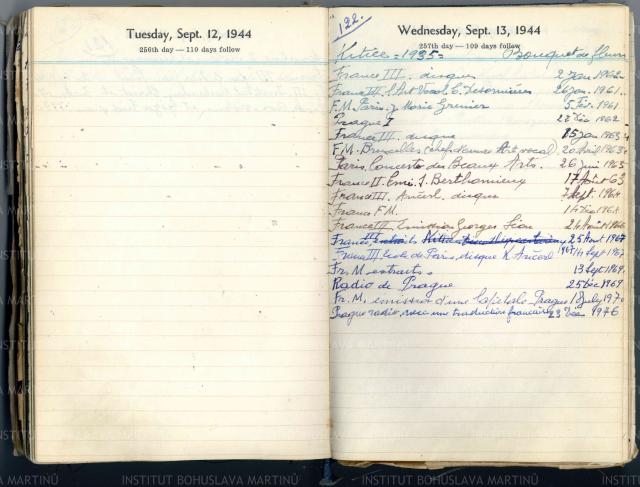 Tuesday, Sept. 12, 1944
256th day — 110 days follow
122.
Wednesday, Sept. 13, 1944
257th day — 109 days follow
Kitice = 1935 = Bouquet de fleurs
France III. disques 2 Jan 1962
France III. L'Art Vocal. C. Desormières 26 Jan. 1961.
F.M. Paris. J. Marie Grenier 5 Fév. 1961
Prague I 22 Déc 1962
France III. disque 15 Jan 1963
F.M. Bruxelles Chef d'œuvre Art vocal. 20 Avril 1963
Paris. Concerts des Beaux Arts. 26 Juin 1963
France II. Emis. J. Berthomieu 17 Août 63
France III. Ančerl. disque 7 Sept. 1964
France F.M. 1964
France III. Emission Georges Léon 24 Août 1966
France III 25 Août 1967
France III Ecole de Paris, disque K. Ančerl 14 Sept 1967
Fr. M. extraits 13 Sept 1969.
Radio de Prague 25 Déc 1969
Fr. M. emission d'une Capitale Prague 1 July 1970
Prague radio, avec une traduction française 23 Déc 1976
INSTITUT BOHUSLAVA MARTINŮ
INSTITUT BOHUSLAVA MARTINŮ